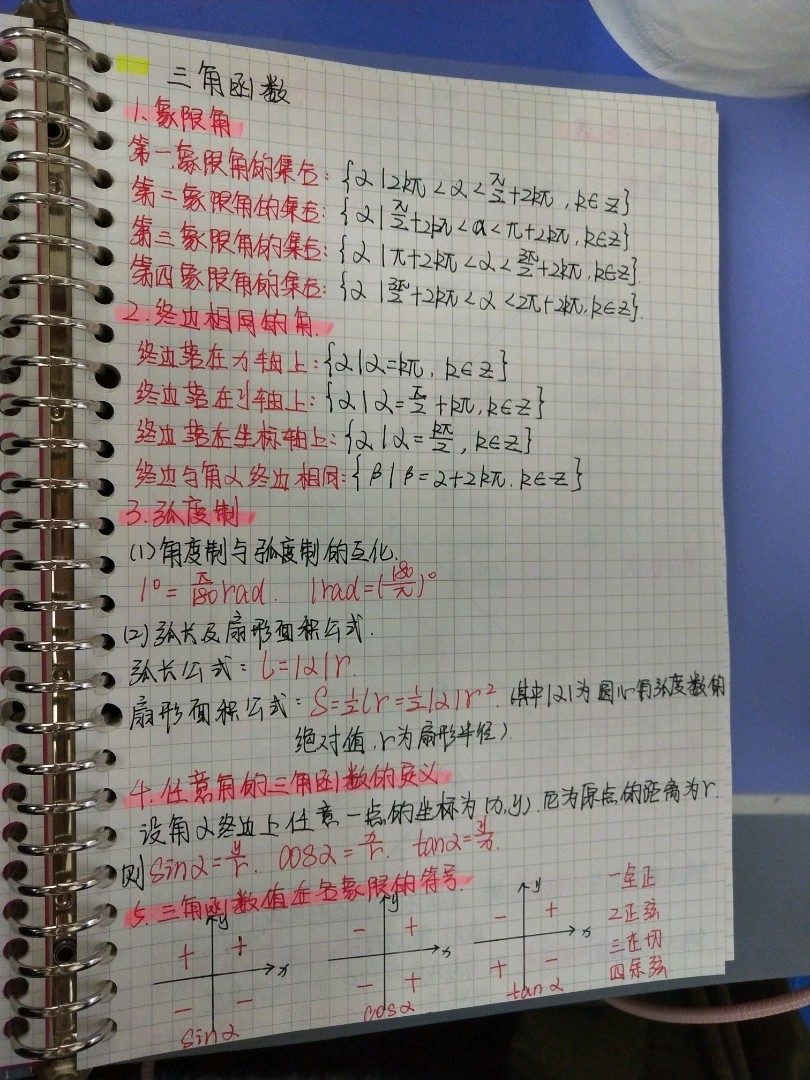 三角函数
1.象限角
第一象限角的集合：{α|2kπ<α<π/2+2kπ，k∈z}
第二象限角的集合：{α|π/2+2kπ<α<π+2kπ，k∈z}
第三象限角的集合：{α|π+2kπ<α<3π/2+2kπ，k∈z}
第四象限角的集合：{α|3π/2+2kπ<α<2π+2kπ，k∈z}.
2.终边相同的角.
终边落在x轴上：{α|α=kπ，k∈z}
终边落在y轴上：{α|α=π/2+kπ，k∈z}
终边落在坐标轴上：{α|α=kπ/2，k∈z}
终边与角α终边相同：{β|β=α+2kπ，k∈z}
3.弧度制
(1)角度制与弧度制的互化.
1°=π/180rad. 1rad=(180/π)°
(2)弧长及扇形面积公式.
弧长公式：l=|α|r.
扇形面积公式：S=1/2lr=1/2|α|r².(其中|α|为圆心角弧度数的
绝对值，r为扇形半径)
4.任意角的三角函数的定义
设角α终边上任意一点的坐标为(x,y)，它为原点的距离为r.
则sinα=y/r. cosα=x/r. tanα=y/x.
5.三角函数值在各象限的符号.
y
+ +
x
- -
sinα
y
- +
x
- +
cosα
y
- +
x
+ -
tanα
一全正
2正弦
三正切
四余弦